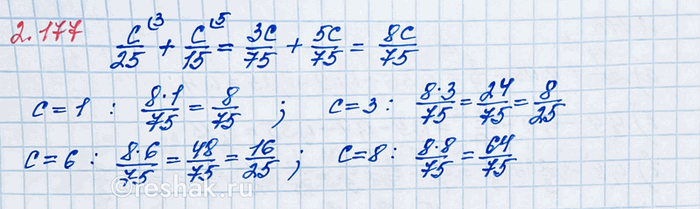 2.177 c/25 (3 + c/15 (5 = 3c/75 + 5c/75 = 8c/75
c = 1 : 8·1/75 = 8/75 ; c = 3 : 8·3/75 = 24/75 = 8/25
c = 6 : 8·6/75 = 48/75 = 16/25 ; c = 8 : 8·8/75 = 64/75
©reshak.ru